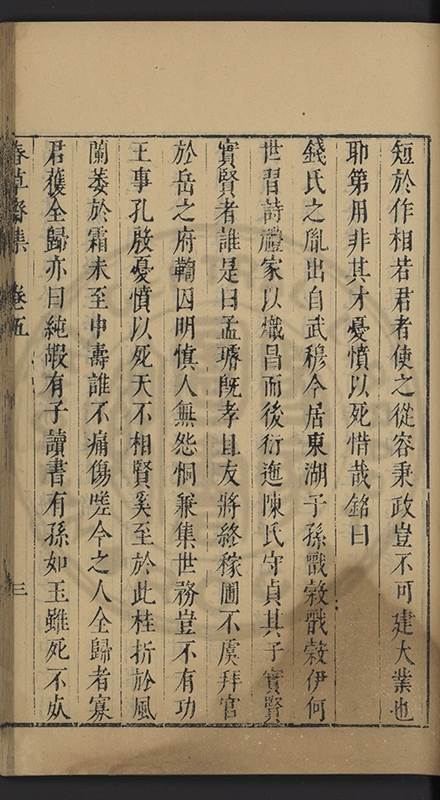 短於作相若君者使之從容秉政豈不可建大業也
耶第用非其才憂憤以死惜哉銘曰
錢氏之胤出自武穆今居東湖子孫戩穀戩穀伊何
世習詩禮家以熾昌而後衍迤陳氏守貞其子實賢
實賢者誰是曰孟璿既孝且友將終稼圃不虞拜官
於岳之府鞫囚明慎人無怨恫兼集世務豈不有功
王事孔殷憂憤以死天不相賢奚至於此桂折於風
蘭萎於霜未至中壽誰不痛傷嗟今之人全歸者寡
君獲全歸亦曰純嘏有子讀書有孫如玉雖死不
春草齋集 卷五 三